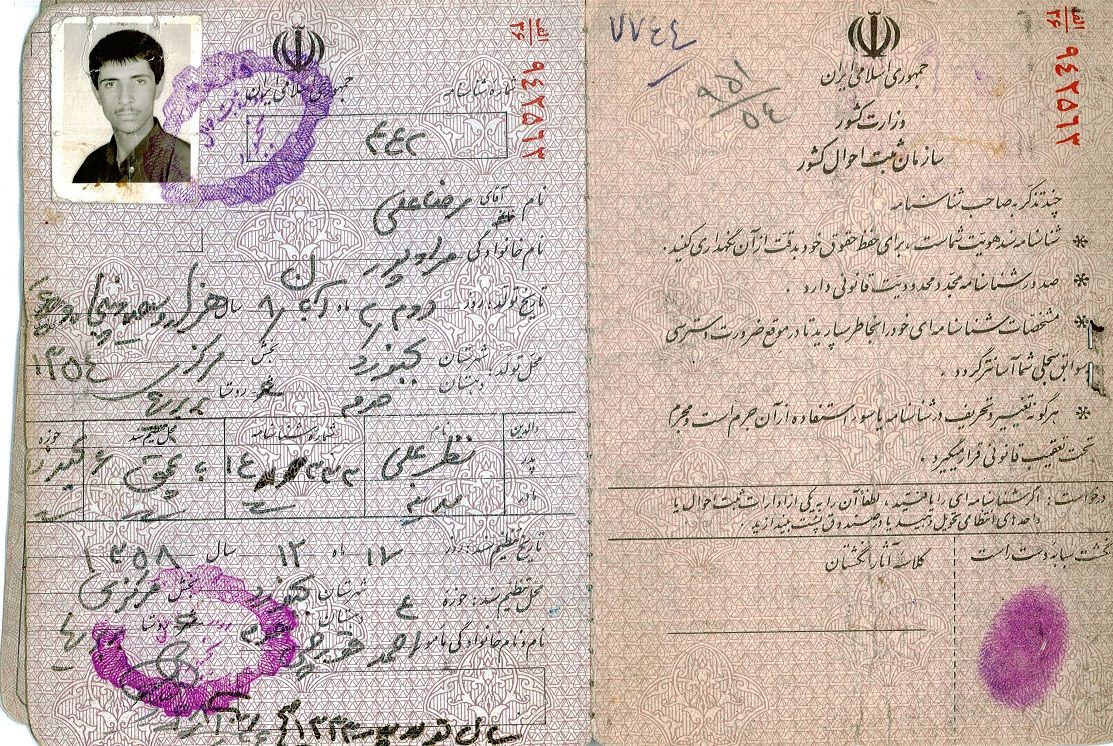 ۷۷٤٤
۹۵۱
۵٤
الف
۳۶
۹٤۲۵۶۳
جمهوری اسلامی ایران
وزارت کشور
سازمان ثبت احوال کشور
چند تذکر به صاحب شناسنامه
* شناسنامه سند هویت شماست، برای حفظ حقوق خود بدقت از آن نگهداری کنید.
* صدور شناسنامه مجدد محدودیت قانونی دارد.
* مشخصات شناسنامه ای خود را بخاطر بسپارید تا در موقع ضرورت دسترسی
سوابق سجلی شما آسانتر گردد.
* هرگونه تغییر و تحریف در شناسنامه یا سوء استفاده از آن جرم است و مجرم
تحت تعقیب قانونی قرار میگیرد.
درخواست: اگر شناسنامه ای را یافتید، لطفاً آن را به یکی از ادارات ثبت احوال یا
واحدهای انتظامی تحویل دهید یا در صندوق پست بیندازید
انگشت سبابه دست است
کلاسه آثار انگشتان
الف
۳۶
۹٤۲۵۶۳
جمهوری اسلامی ایران
شماره شناسنامه
٤٤۲
نام آقای رضاعلی
نام خانوادگی مرادپور
تاریخ تولد: روز دوم ۲ ماه آبان ۸ سال هزار و سیصد و پنجاه و چهار
۱۳۵٤
محل تولد: شهرستان بجنورد بخش مرکزی
دهستان روستا
والدین نام شماره شناسنامه محل تنظیم سند حوزه
پدر نظر علی
مادر
تاریخ تنظیم سند: روز ۱۷ ماه ۱۲ سال ۱۳۵۸
محل تنظیم سند: حوزه ٤ شهرستان بجنورد بخش مرکزی
دهستان روستا
نام و نام خانوادگی مأمور احمد